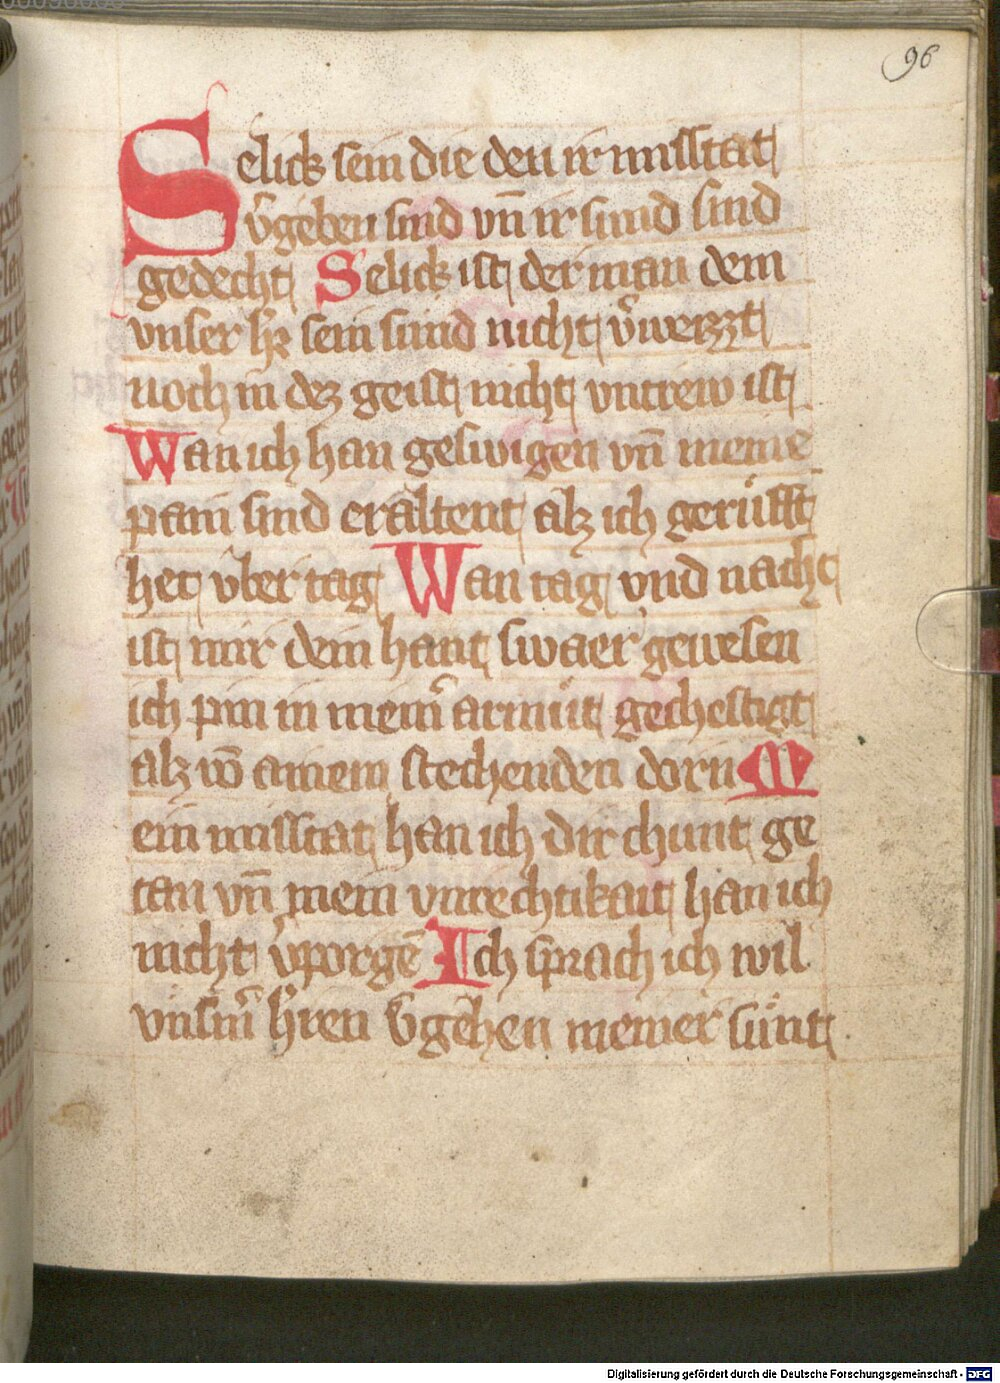 96
Selick sein die den ir missitat
v̄geben sind vn̄ ir sund sind
gedecht Selick ist der man dem
vnser h̄r sein sund nicht v̄werzzt
noch in dez geist nicht vntrew ist
Wan ich han geswigen vn̄ meine
pain sind eraltent alz ich gerüfft
het vber tag Wan tag vnd nacht
ist mir dein hant swaer gewesen
ich pin in mein̄ armüt gechestigt
alz vō ainem stechenden dorn M
ein missitat han ich dir chunt ge
tan vn̄ mein vnrechtikait han ich
nicht v̄porgē Ich sprach ich wil
vnsm̄ h̄ren v̄gehen meiner sünt
Digitalisierung gefördert durch die Deutsche Forschungsgemeinschaft - DFG